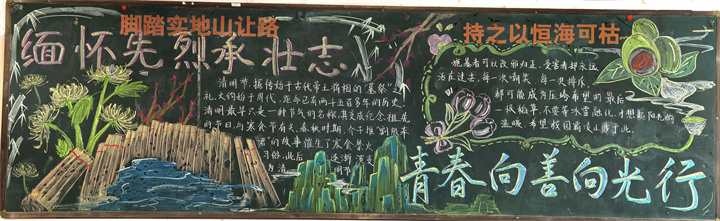 脚踏实地山让路
持之以恒海可枯
缅怀先烈承壮志
清明节,据传始于古代帝王将相的"墓祭"之
礼,大约始于周代,距今已有两千五百多年的历史,
清明最早只是一种节气的名称,其变成纪念祖先
的节日与寒食节有关。春秋时期,介子推"割股奉
君"的故事催生了寒食禁火
习俗,此后
逐渐演变
为清
明节
施暴者可以改邪归正,受害者却永远
活在过去,每一次嘲笑,每一次排挤
都可能成为压垮希望的最后
一根稻草。不要等冰雪融化,才想起阳光的
温暖
青春向善向光行